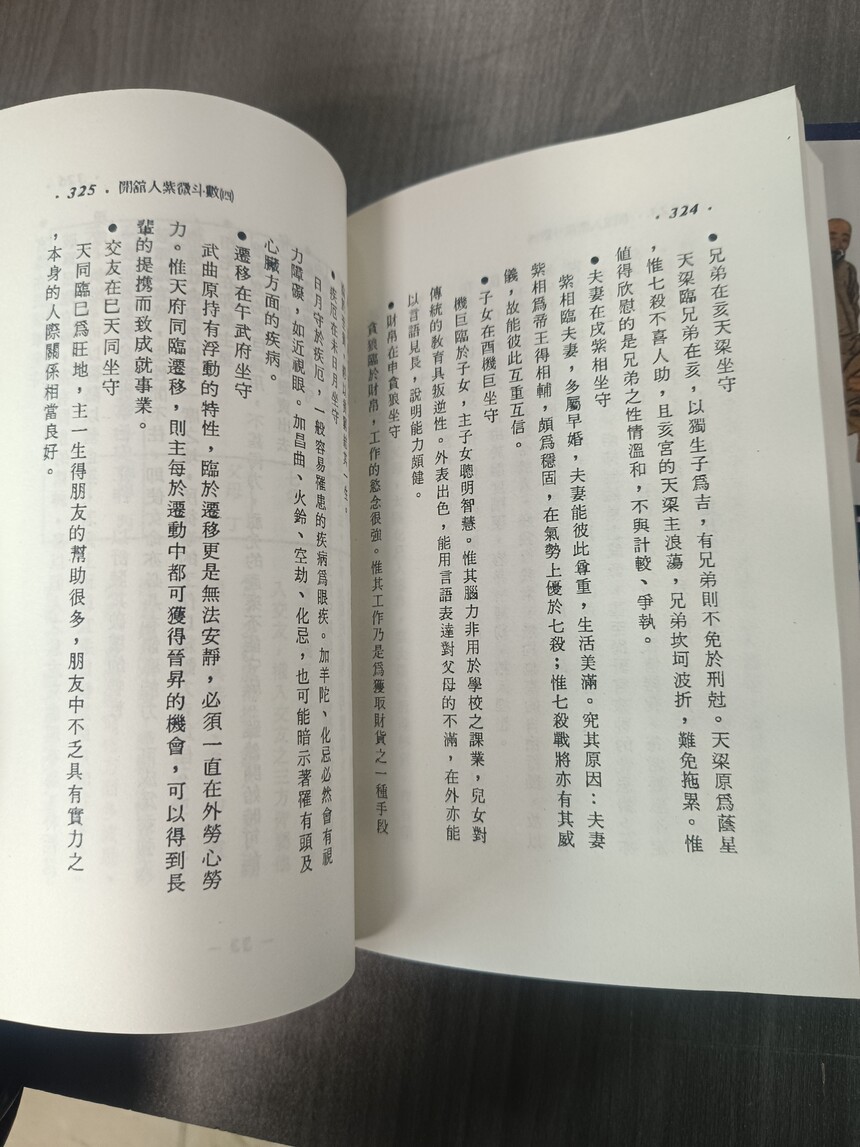 ·324·
●兄弟在亥天梁坐守
天梁臨兄弟在亥,以獨生子爲吉,有兄弟則不免於刑尅。天梁原爲蔭星
,惟七殺不喜人助,且亥宮的天梁主浪蕩,兄弟坎坷波折,難免拖累。惟
値得欣慰的是兄弟之性情溫和,不與計較、爭執。
●夫妻在戌紫相坐守
紫相臨夫妻,多屬早婚,夫妻能彼此尊重,生活美滿。究其原因:夫妻
紫相爲帝王得相輔,頗爲穩固,在氣勢上優於七殺;惟七殺戰將亦有其威
儀,故能彼此互重互信。
●子女在酉機巨坐守
機巨臨於子女,主子女聰明智慧。惟其腦力非用於學校之課業,兒女對
傳統的敎育具叛逆性。外表出色,能用言語表達對父母的不滿,在外亦能
以言語見長,說明能力頗健。
●財帛在申貪狼坐守
貪狼臨於財帛,工作的慾念很強。惟其工作乃是爲獲取財貨之一種手段
·325·開館人紫微斗數(四)
●疾厄在未日月坐守
日月守於疾厄,一般容易罹患的疾病爲眼疾。加羊陀、化忌必然會有視
力障礙,如近視眼。加昌曲、火鈴、空劫、化忌,也可能暗示著罹有頭及
心臟方面的疾病。
●遷移在午武府坐守
武曲原持有浮動的特性,臨於遷移更是無法安靜,必須一直在外勞心勞
力。惟天府同臨遷移,則主每於遷動中都可獲得晉昇的機會,可以得到長
輩的提携而致成就事業。
●交友在巳天同坐守
天同臨巳爲旺地,主一生得朋友的幫助很多,朋友中不乏具有實力之
,本身的人際關係相當良好。